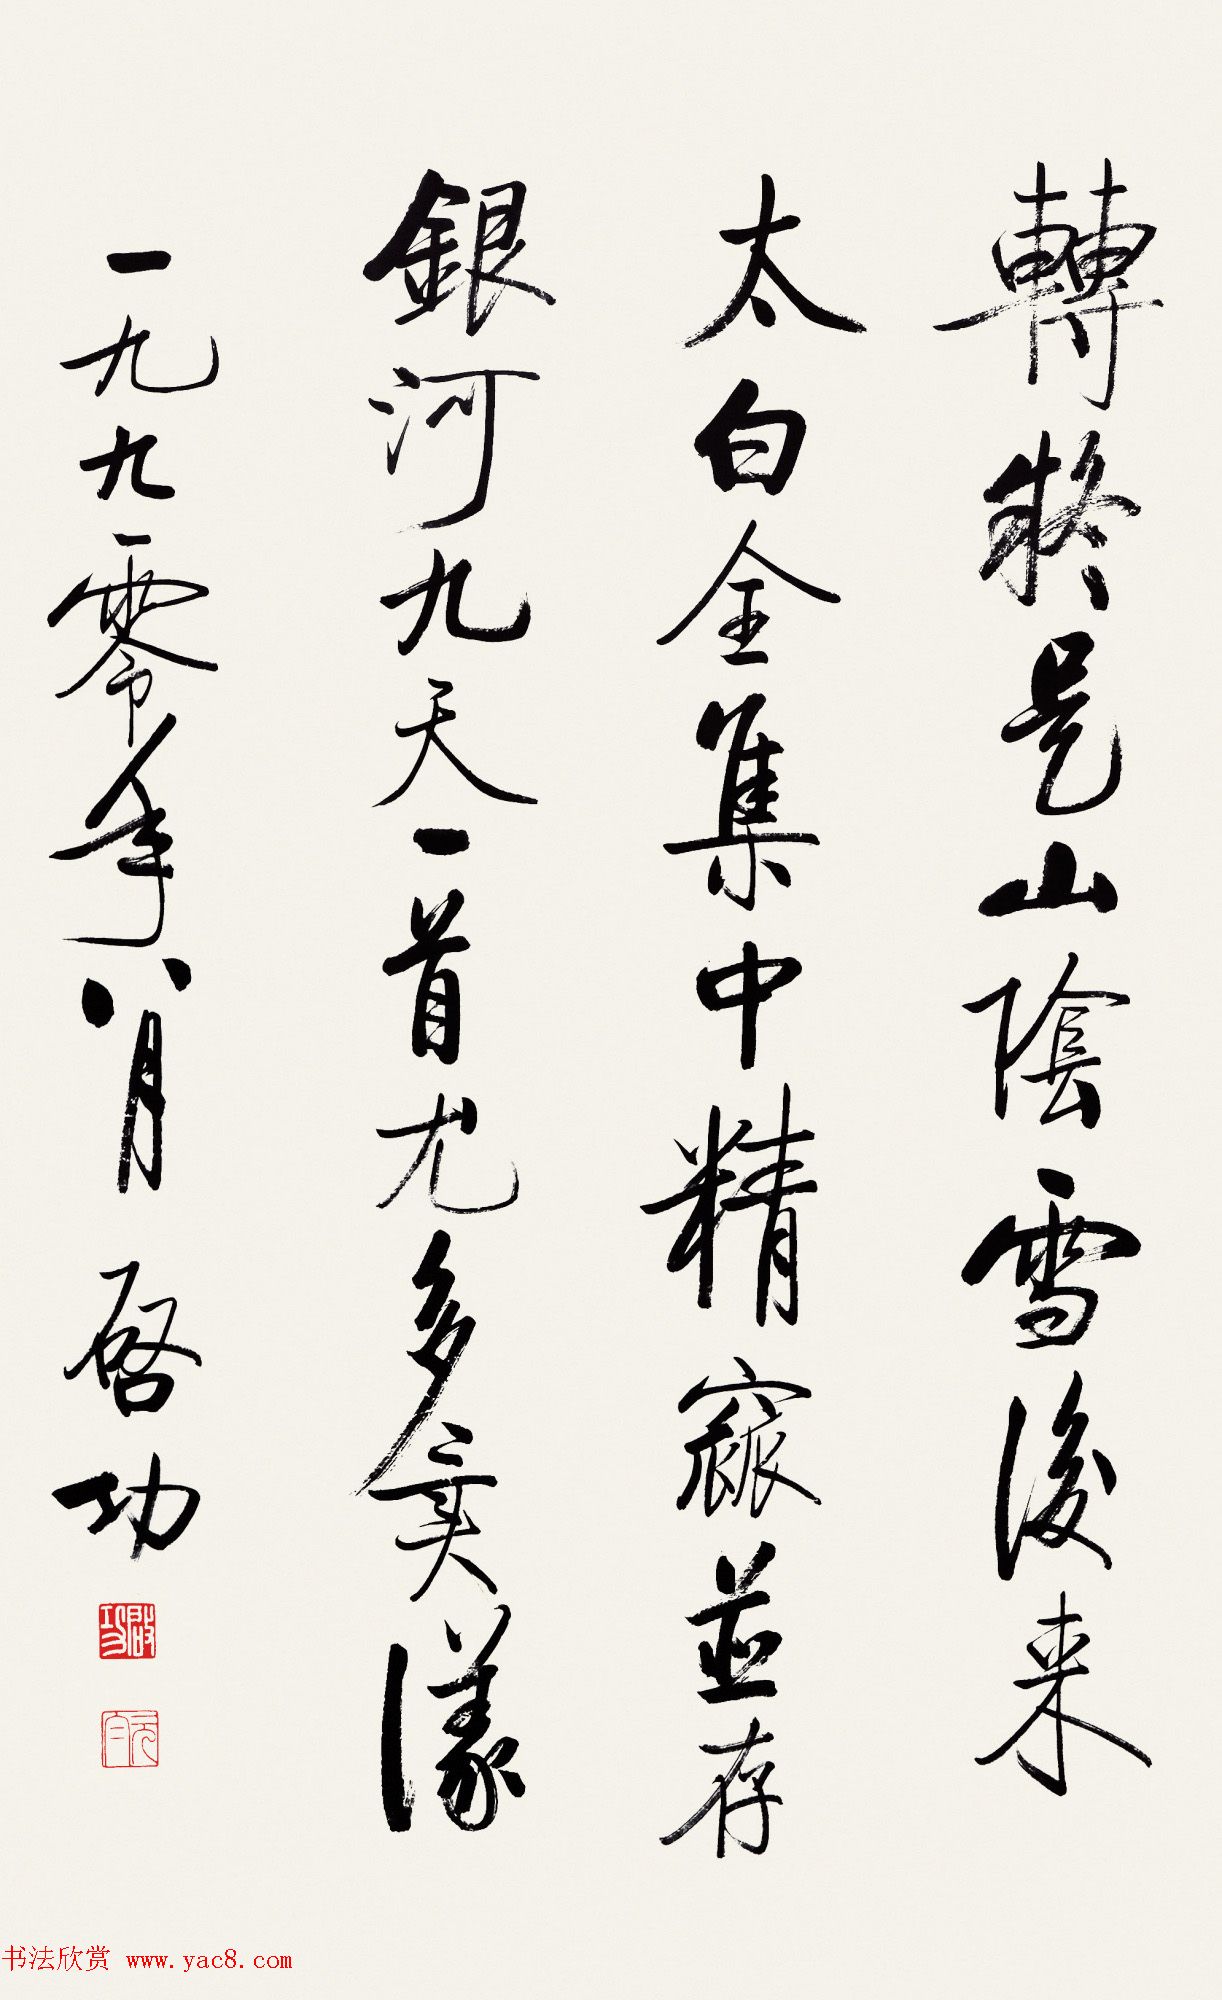 轉疑是山陰雪後来
太白全集中精窳並存
銀河九天一首尤多異議
一九九零年八月 啓功
啟功
元白
书法欣赏 www.yac8.com